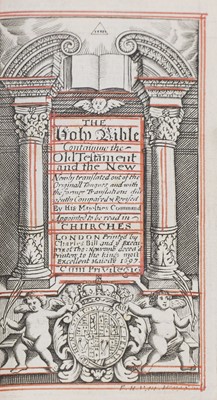 THE
Holy Bible
Containing the
Old Testament
and the New
Newly translated out of the
Originall Tongues and with
the former Translations dili
gently Compared & Revised
By His Majesties Command
Appointed to be read in
CHURCHES
LONDON Printed by
Charles Bill and y Execu
trix of Tho: Newcomb deceas'd
Printers to the Kings most
Excellent Majesty 1697
Cum Privilegio